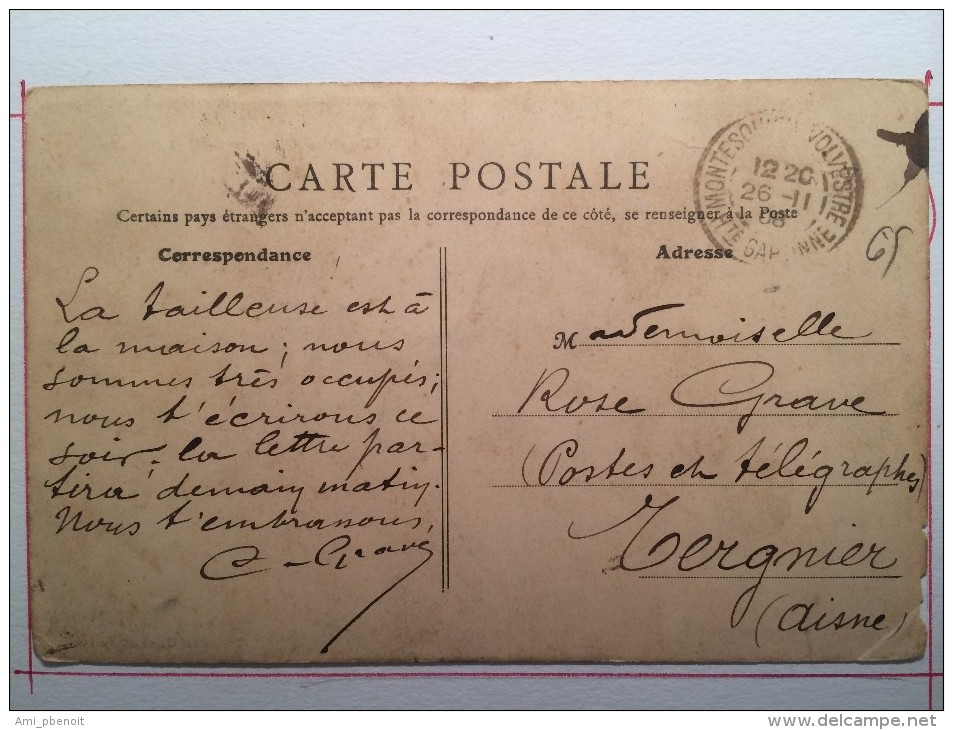 CARTE POSTALE
Certains pays étrangers n'acceptant pas la correspondance de ce côté, se renseigner à la Poste
MONTESQUIEU VOLVESTRE
12 20
26 -11
08
Hte GARONNE
65
Correspondance
La tailleuse est à
la maison; nous
sommes très occupés;
nous t'écrirons ce
soir. la lettre par-
tira demain matin.
Nous t'embrassons,
C. Grave
Adresse
Mademoiselle
Rose Grave
(Postes et télégraphes)
Tergnier
(Aisne)
Ami_pbenoit
www.delcampe.net